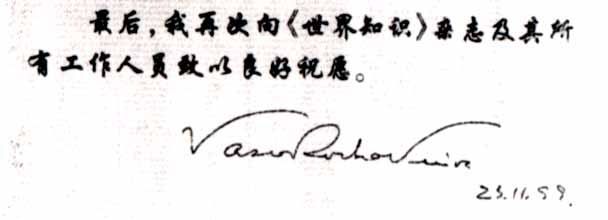 最后,我再次向《世界知识》杂志及其所
有工作人员致以良好祝愿。
Vasco Rocha Vieira
23.11.99.